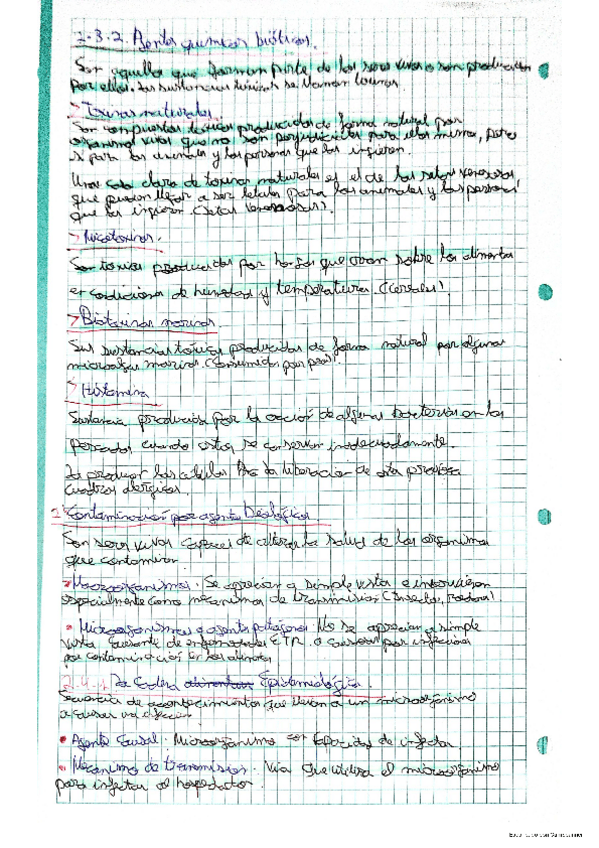 2.3.2. Agentes químicos bióticos.
Son aquellos que forman parte de los seres vivos o son producidos
por ellos. Las sustancias tóxicas se llaman toxinas.
> Toxinas naturales.
Son compuestos tóxicos producidos de forma natural por
organismos vivos que no son perjudiciales para ellos mismos, pero
si para los animales y las personas que los ingieren.
Un caso claro de toxinas naturales es el de las setas venenosas
que pueden llegar a ser letales para los animales y las personas
que las ingieren. (Setas venenosas).
> Micotoxinas.
Son toxinas producidas por hongos que crecen sobre los alimentos
en condiciones de humedad y temperaturas. (Cereales)
> Biotoxinas marinas
Sus sustancias tóxicas producidas de forma natural por algunas
microalgas marinas. (Consumidas por peces).
> Histamina
Sustancia producida por la acción de algunas bacterias en los
pescados cuando estos se conservan inadecuadamente.
La producen las células la liberación de esta provoca
cuadros alérgicos.
Contaminación por agentes Biológicos
Son seres vivos capaces de alterar la salud de los organismos
que contaminan.
• Macroorganismos. Se aprecian a simple vista e intervienen
especialmente como mecanismos de transmisión (Insectos, Roedores).
• Microorganismos o agentes patógenos. No se aprecian a simple
vista. Causante de enfermedades ETA. o causadas por infecciones
por contaminación en los alimentos
2.4.1. La Cadena Epidemiológica.
Secuencia de acontecimientos que llevan a un microorganismo
a causar una infección
• Agente Causal. Microorganismo con capacidad de infectar.
• Mecanismo de transmisión. Vía que utiliza el microorganismo
para infectar al hospedador.